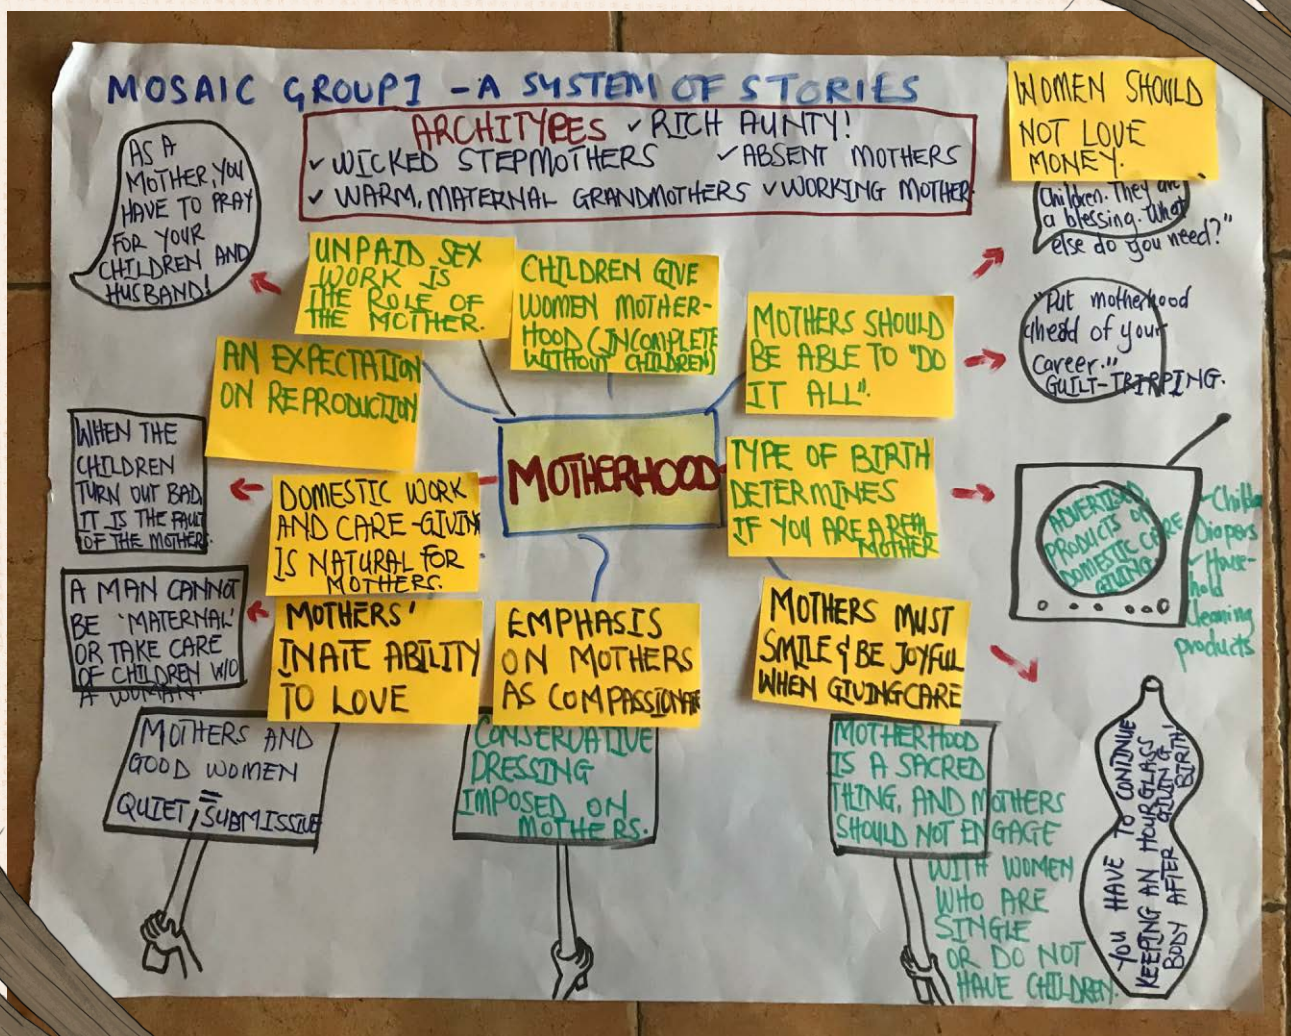 MOSAIC GROUP1 - A SYSTEM OF STORIES
ARCHITYPES ✓ RICH AUNTY!
✓ WICKED STEPMOTHERS ✓ ABSENT MOTHERS
✓ WARM, MATERNAL GRANDMOTHERS ✓ WORKING MOTHER
WOMEN SHOULD
NOT LOVE
MONEY.
AS A
MOTHER, YOU
HAVE TO PRAY
FOR YOUR
CHILDREN AND
HUSBAND!
Children. They are
a blessing. What
else do you need?"
UNPAID SEX
WORK IS
THE ROLE OF
THE MOTHER.
CHILDREN GIVE
WOMEN MOTHER-
HOOD (INCOMPLETE
WITHOUT CHILDREN)
MOTHERS SHOULD
BE ABLE TO "DO
IT ALL".
"Put motherhood
ahead of your
Career."
GUILT-TRIPPING.
AN EXPECTATION
ON REPRODUCTION
WHEN THE
CHILDREN
TURN OUT BAD,
IT IS THE FAULT
OF THE MOTHERS.
DOMESTIC WORK
AND CARE-GIVING
IS NATURAL FOR
MOTHERS.
MOTHERHOOD
TYPE OF BIRTH
DETERMINES
IF YOU ARE A REAL
MOTHER
ADVERTISING
PRODUCTS ON
DOMESTIC CARE
GIVING
Diapers
House-
hold
cleaning
products
A MAN CANNOT
BE 'MATERNAL'
OR TAKE CARE
OF CHILDREN W/O
A WOMAN.
MOTHERS'
INATE ABILITY
TO LOVE
EMPHASIS
ON MOTHERS
AS COMPASSIONATE
MOTHERS MUST
SMILE & BE JOYFUL
WHEN GIVING CARE
MOTHERS AND
GOOD WOMEN
=
QUIET, SUBMISSIVE
CONSERVATIVE
DRESSING
IMPOSED ON
MOTHERS.
MOTHERHOOD
IS A SACRED
THING, AND MOTHERS
SHOULD NOT ENGAGE
WITH WOMEN
WHO ARE
SINGLE
OR DO NOT
HAVE CHILDREN.
YOU HAVE TO CONTINUE
KEEPING AN HOURGLASS
BODY AFTER GIVING
BIRTH!